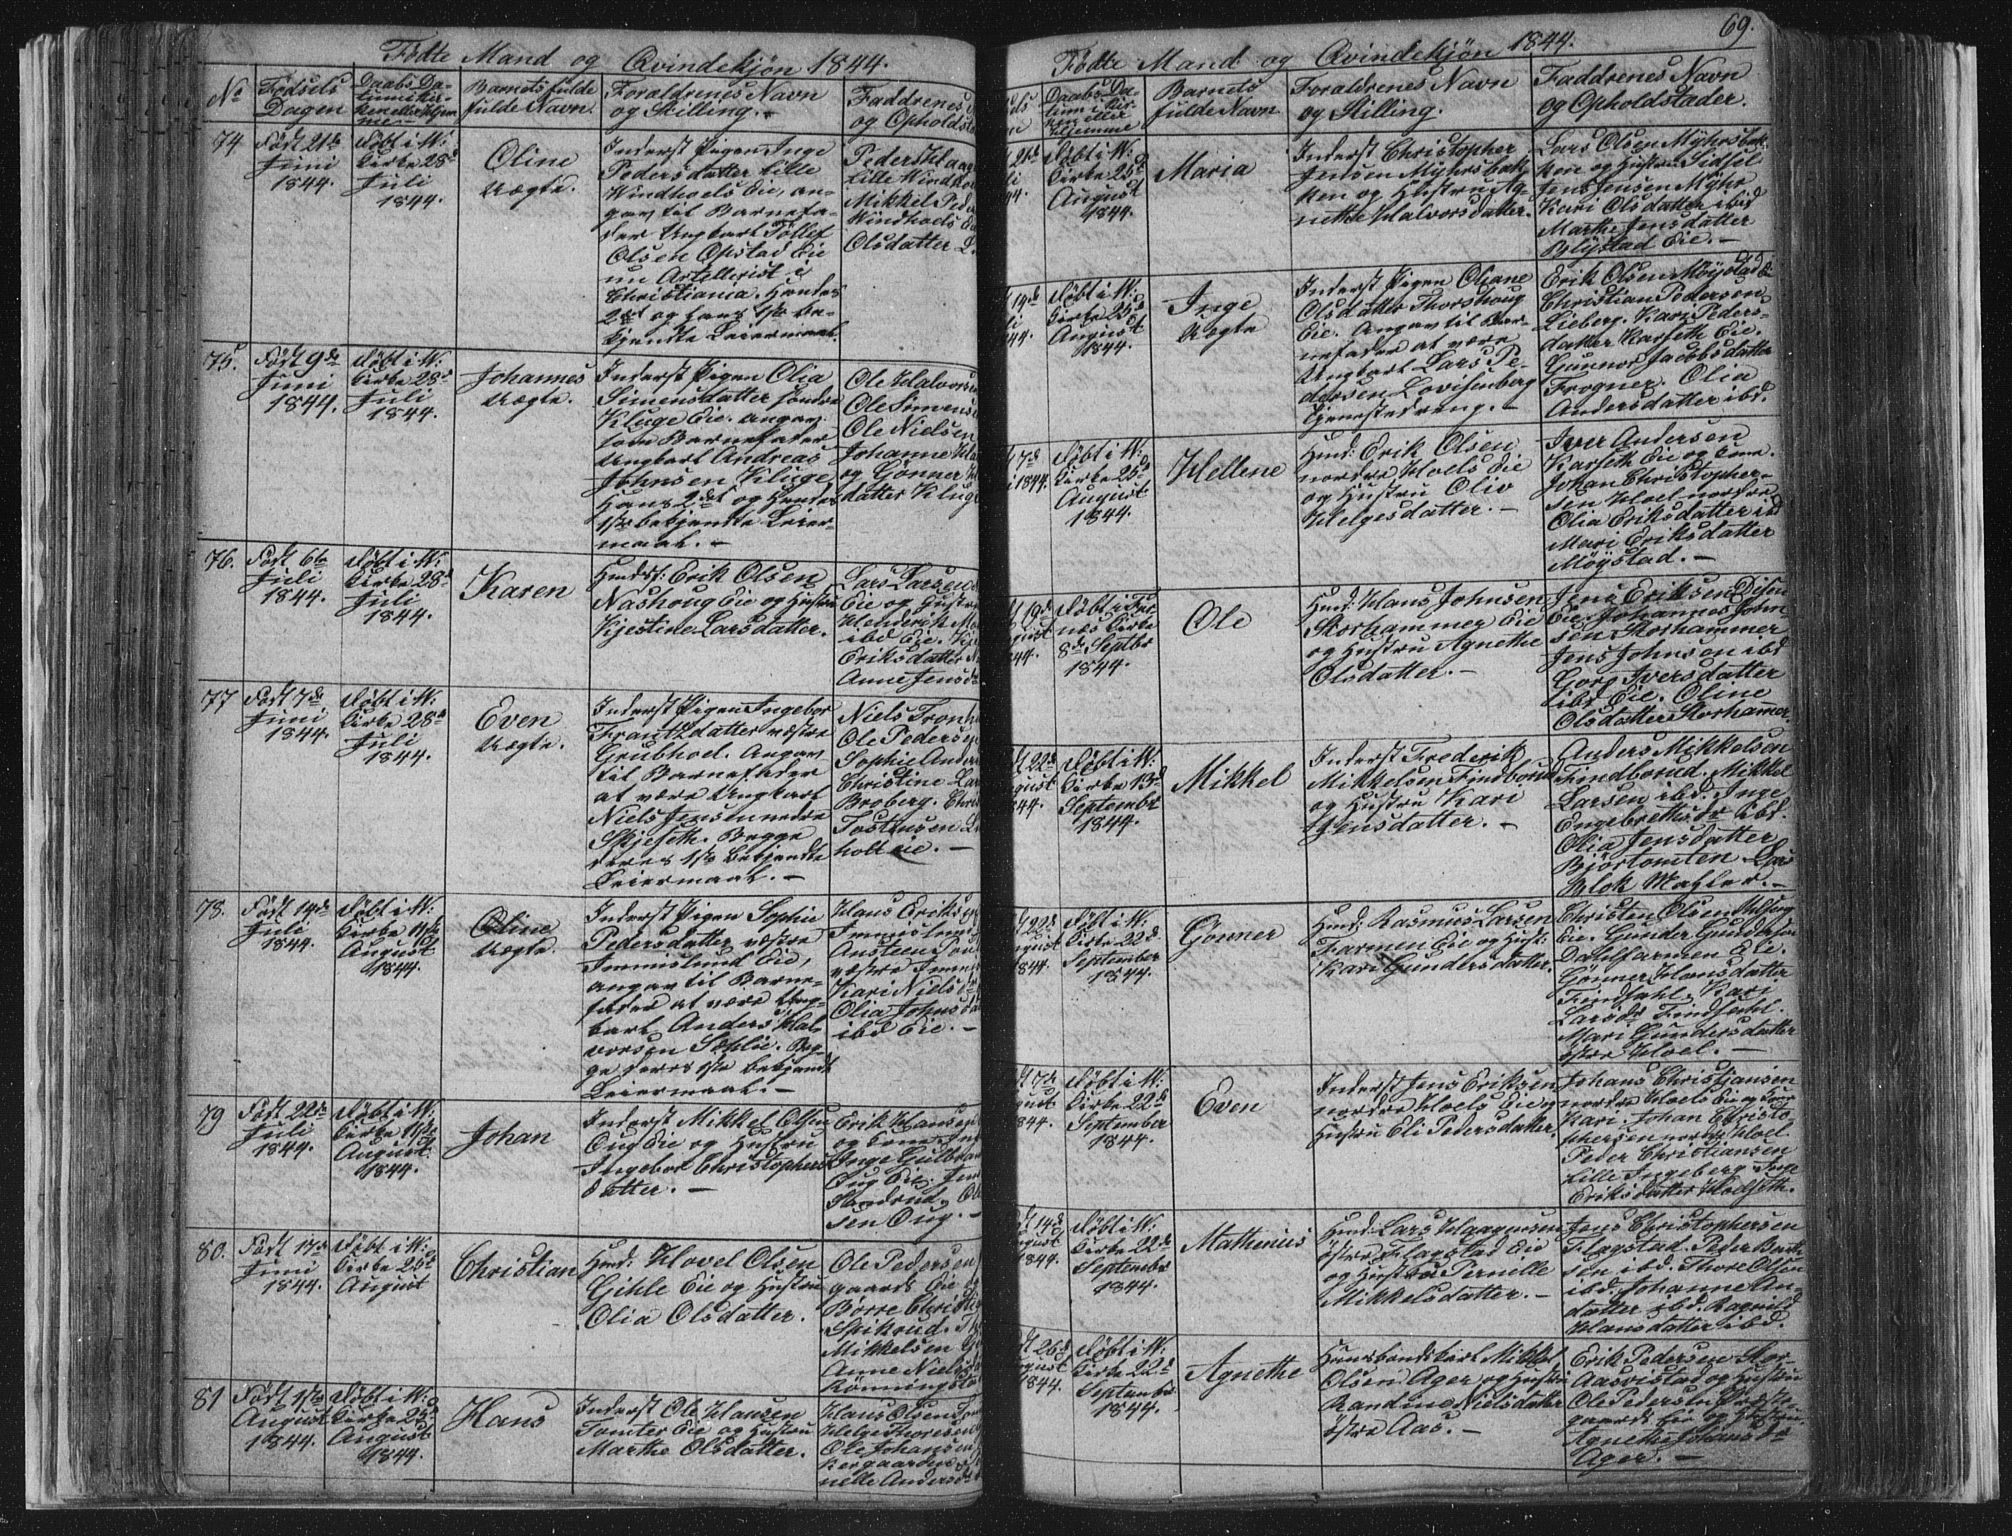 Födte Mand og Qvindekjön 1844.
No
Födsels Dagen
Daabs Datum i Kirken eller Hjemme
Barnets fulde Navn.
Foraldrenes Navn og Stilling.
Faddrenes
og Opholdst
74.
Födt 21de
Juni
1844.
Döbt i W:
Kirke 28de
Juli
1844.
Oline
Uægte.
Inderst Pigen Inge
Pedersdatter Lille
Windhoels Eie, an-
gav til Barnefa-
der Ungkarl Tollef
Olsen Opstad Eie
nu Artellerist i
Christiania. Hendes
2det og hans 1ste be-
kjendte Leiermaal.
Peders
Lille Windho
Mikkel Pede
Windhoels E
Olsdatter
75.
Födt 9de
Juni
1844.
Döbt i W.
Kirke 28de
Juli
1844.
Johannes
Uægte.
Inderst Pigen Olia
Simensdatter söndre
Kluge Eie. angav
som Barnefader
Ungkarl Andreas
Johnsen Kluge
Hans 2det og Hendes
1ste bekjendte Leier-
maal. —
Ole Halvors
Ole Simens
Ole Nielsen
Johanne
og Gönner
datter Klug
76.
Födt 6te
Juli
1844.
Döbt i W:
Kirke 28de
Juli
1844.
Karen
Huusf: Erik Olsen
Nashoug Eie og Hustru
Kjestine Larsdatter.
Lars Larsen
Eie og Hustr
Henderik
ibd Eie.
Eriksdatter
Anne Jensd
77
Födt 7de
Juni
1844.
Döbt i W.
Kirke 28de
Juli
1844.
Even
Uægte.
Inderst Pigen Ingebor
Frantzdatter væstre
Grubhoel. Angav
til Barnefader
at være Ungkarl
Niels Jensen nedre
Skjeseth. Begge
deres 1ste bekjendte
Leiermaal. —
Niels Tronh
Ole Pedersen
Sophie Ander
Christine Lar
Broberg. Chris
Tostensen
holt eie. —
78.
Födt 14de
Juli
1844.
Döbt i W:
Kirke 11te
August
1844.
Oline
Uægte.
Inderst Pigen Sophie
Pedersdatter væstre
Immislund Eie,
angav til Barne-
fader at være Ung-
karl Anders Hal-
vorsen Sæhlie. Beg-
ge deres 1ste bekjendte
Leiermaal. —
Hans Eriks
Immislund
Austeen
væstre Imm
Kari Niels
Olia Johnsd
ibd Eie. —
79
Födt 22de
Juli
1844.
Döbt i W:
Kirke 11te
August
1844.
Johan
Inderst Mikkel Olsen
Oug Eie og Hustru
Ingebor Christophers-
datter. —
Erik Hansen
og Kone
Inge Gulbran
Oug Eie. Jen
sen Oug. —
80.
Födt 17de
Juni
1844.
Döbt i W:
Kirke 25de
August
Christian
Huusf: Hovel Olsen
Gihle Eie og Hustru
Olia Olsdatter.
Ole Pedersen
gaards Eie
Börre Christi
Spikrud.
Mikkelsen
Anne Niels
Rönningsta
81
Födt 1ste
August
1844.
Döbt i W:
Kirke 25de
August
1844.
Hans
Inderst Ole Hansen
Tomter Eie og Hustru
Marthe Olsdatter.
Hans Olsen
Helge Thoresen
Ole Johansen
nelle Andersd
Födte Mand og Qvindekjön 1844.
69.
Daabs Datum i Kirken eller Hjemme
Barnets fulde Navn
Foraldrenes Navn og Stilling.
Faddrenes Navn og Opholdstader.
21de
1844.
Döbt i W:
Kirke 25de
August
1844.
Maria
Inderst Christopher
Jensen Myhrsbak-
ken og Hustru Ag-
nethe Halvorsdatter.
Lars Olsen Myhrsbak-
ken og Hustru Sidsel
Jens Jensen Myhr
Kari Olsdatter ibid
Marthe Jensdatter
Blystad Eie. —
14de
1844.
Döbt i W:
Kirke 25de
August
1844.
Inge
Uægte
Inderst Pigen Oliane
Olsdatter Thorshoug
Eie. Angav til Bar-
nefader at være
Ungkarl Lars Pe-
dersen Lovisenberg
Tjenestedreng. —
Erik Olsen Möystad Eie
Christian Pedersen
Lieberg. Kari Peders-
datter Karseth Eie.
Gunnor Jacobsdatter
Frogner. Olia
Andersdatter ibd.
7de
1844.
Döbt i W:
Kirke 25de
August
1844.
Hellene
Huusf: Erik Olsen
nordre Hoels Eie
og Hustru Oliv
Helgesdatter. —
Iver Andersen
Karseth Eie og Kone.
Johan Christopher-
sen Hoel nordre
Olia Eriksdatter ibd
Mari Eriksdatter
Möystad. —
19de
August
1844.
Döbt i Fur-
næs Kirke
8de Septbr
1844.
Ole
Huusf: Hans Johnsen
Storhammer Eie
og Hustru Agnethe
Olsdatter. —
Jens Eriksen Disen
Eie. Johannes John-
sen Storhammer
Jens Johnsen ibd
Gorg Iversdatter
ibd Eie. Oline
Olsdatter Storhamer.
22de
August
1844.
Döbt i W:
Kirke 15de
September
1844.
Mikkel
Inderst Frederik
Mikkelsen Findborud
og Hustru Kari
Jensdatter. —
Anders Mikkelsen
Findborud. Mikkel
Larsen ibd. Inge
Engebrethsdr ibd.
Olia Jensdatter
Björtomten Lars
Blok Mahler. —
22de
August
1844.
Döbt i W:
Kirke 22de
September
1844.
Gönner
Huusf: Rasmus Larsen
Farmen Eie og Hust:
Kari Gundersdatter.
Christen Olsen
Eie. Gunder Gundersen
Dahlfarmen Eie.
Gönner Hansdatter
Findsahl. Kari
Larsdr Findsahl.
Mari Gundersdatter
östre Hoel. —
7de
August
1844.
Döbt i W:
Kirke 22de
September
1844.
Even
Inderst Jens Eriksen
nordre Hoels Eie og
Hustru Eli Pedersdatter.
Johans Christiansen
nordre Hoels Eie og
Kari. Johan Christo-
phersen nordre Hoel.
Peder Christiansen
Lille Ingeberg. Inge
Eriksdatter Hoelseth.
14de
August
1844.
Döbt i W:
Kirke 22de
September
1844.
Mathenius
Huusf: Lars Haagensen
östre Flagstad Eie
og Hustru Pernille
Mikkelsdatter. —
Jens Christophersen
Flagstad. Peder Bent-
sen ibd. Thore Olsen
ibd. Johanne An-
datter ibd. Ragnild
Hansdatter ibd.
26de
August
1844.
Döbt i W:
Kirke 22de
September
1844.
Agnethe
Huusbandskarl Mikkel
Olsen Ager og Hustru
Randine Nielsdatter
östre Aas. —
Erik Pedersen Stor
Aasvistad og Hustru
Ole Pedersen Præste-
gaards Eie og Hustru
Agnethe Johansdr
Ager. —